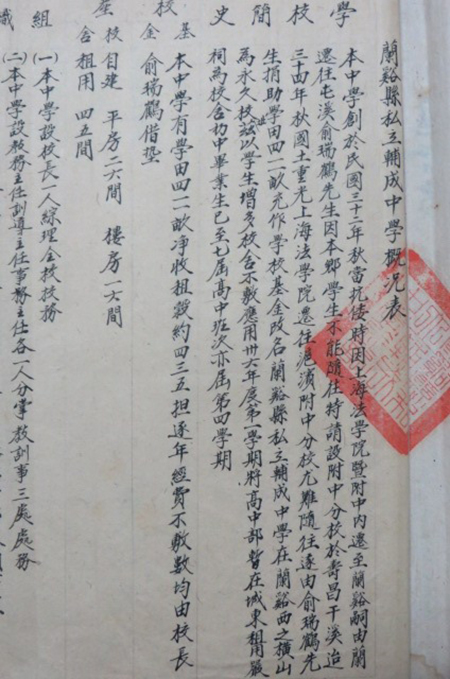 蘭谿縣私立輔成中學概况表
學校簡史
本中學創於民國三十二年秋當抗倭時因上海法學院暨附中內遷至蘭谿嗣由蘭
遷往屯溪俞瑞鶴先生因本鄉學生不能隨往特請設附中分校於壽昌干溪迨
三十四年秋國土重光上海法學院遷往滬濱附中分校尤難隨往遂由俞瑞鶴先
生捐助學田四一二畝充作學校基金改名蘭谿縣私立輔成中學在蘭谿西之橫山
為永久校址以學生增多校舍不敷應用卅六年度第一學期將高中部暫在城東租用嚴
祠為校舍初中畢業生已至七屆高中班次亦屆第四學期
校基金
本中學有學田四一二畝凈收租穀約四三五担逐年經費不敷數均由校長
俞瑞鶴借墊
校舍
自建 平房二六間 樓房一六間
租用 四五間
組織
(一)本中學設校長一人綜理全校校務
(二)本中學設教務主任訓導主任事務主任各一人分掌教訓事三處處務